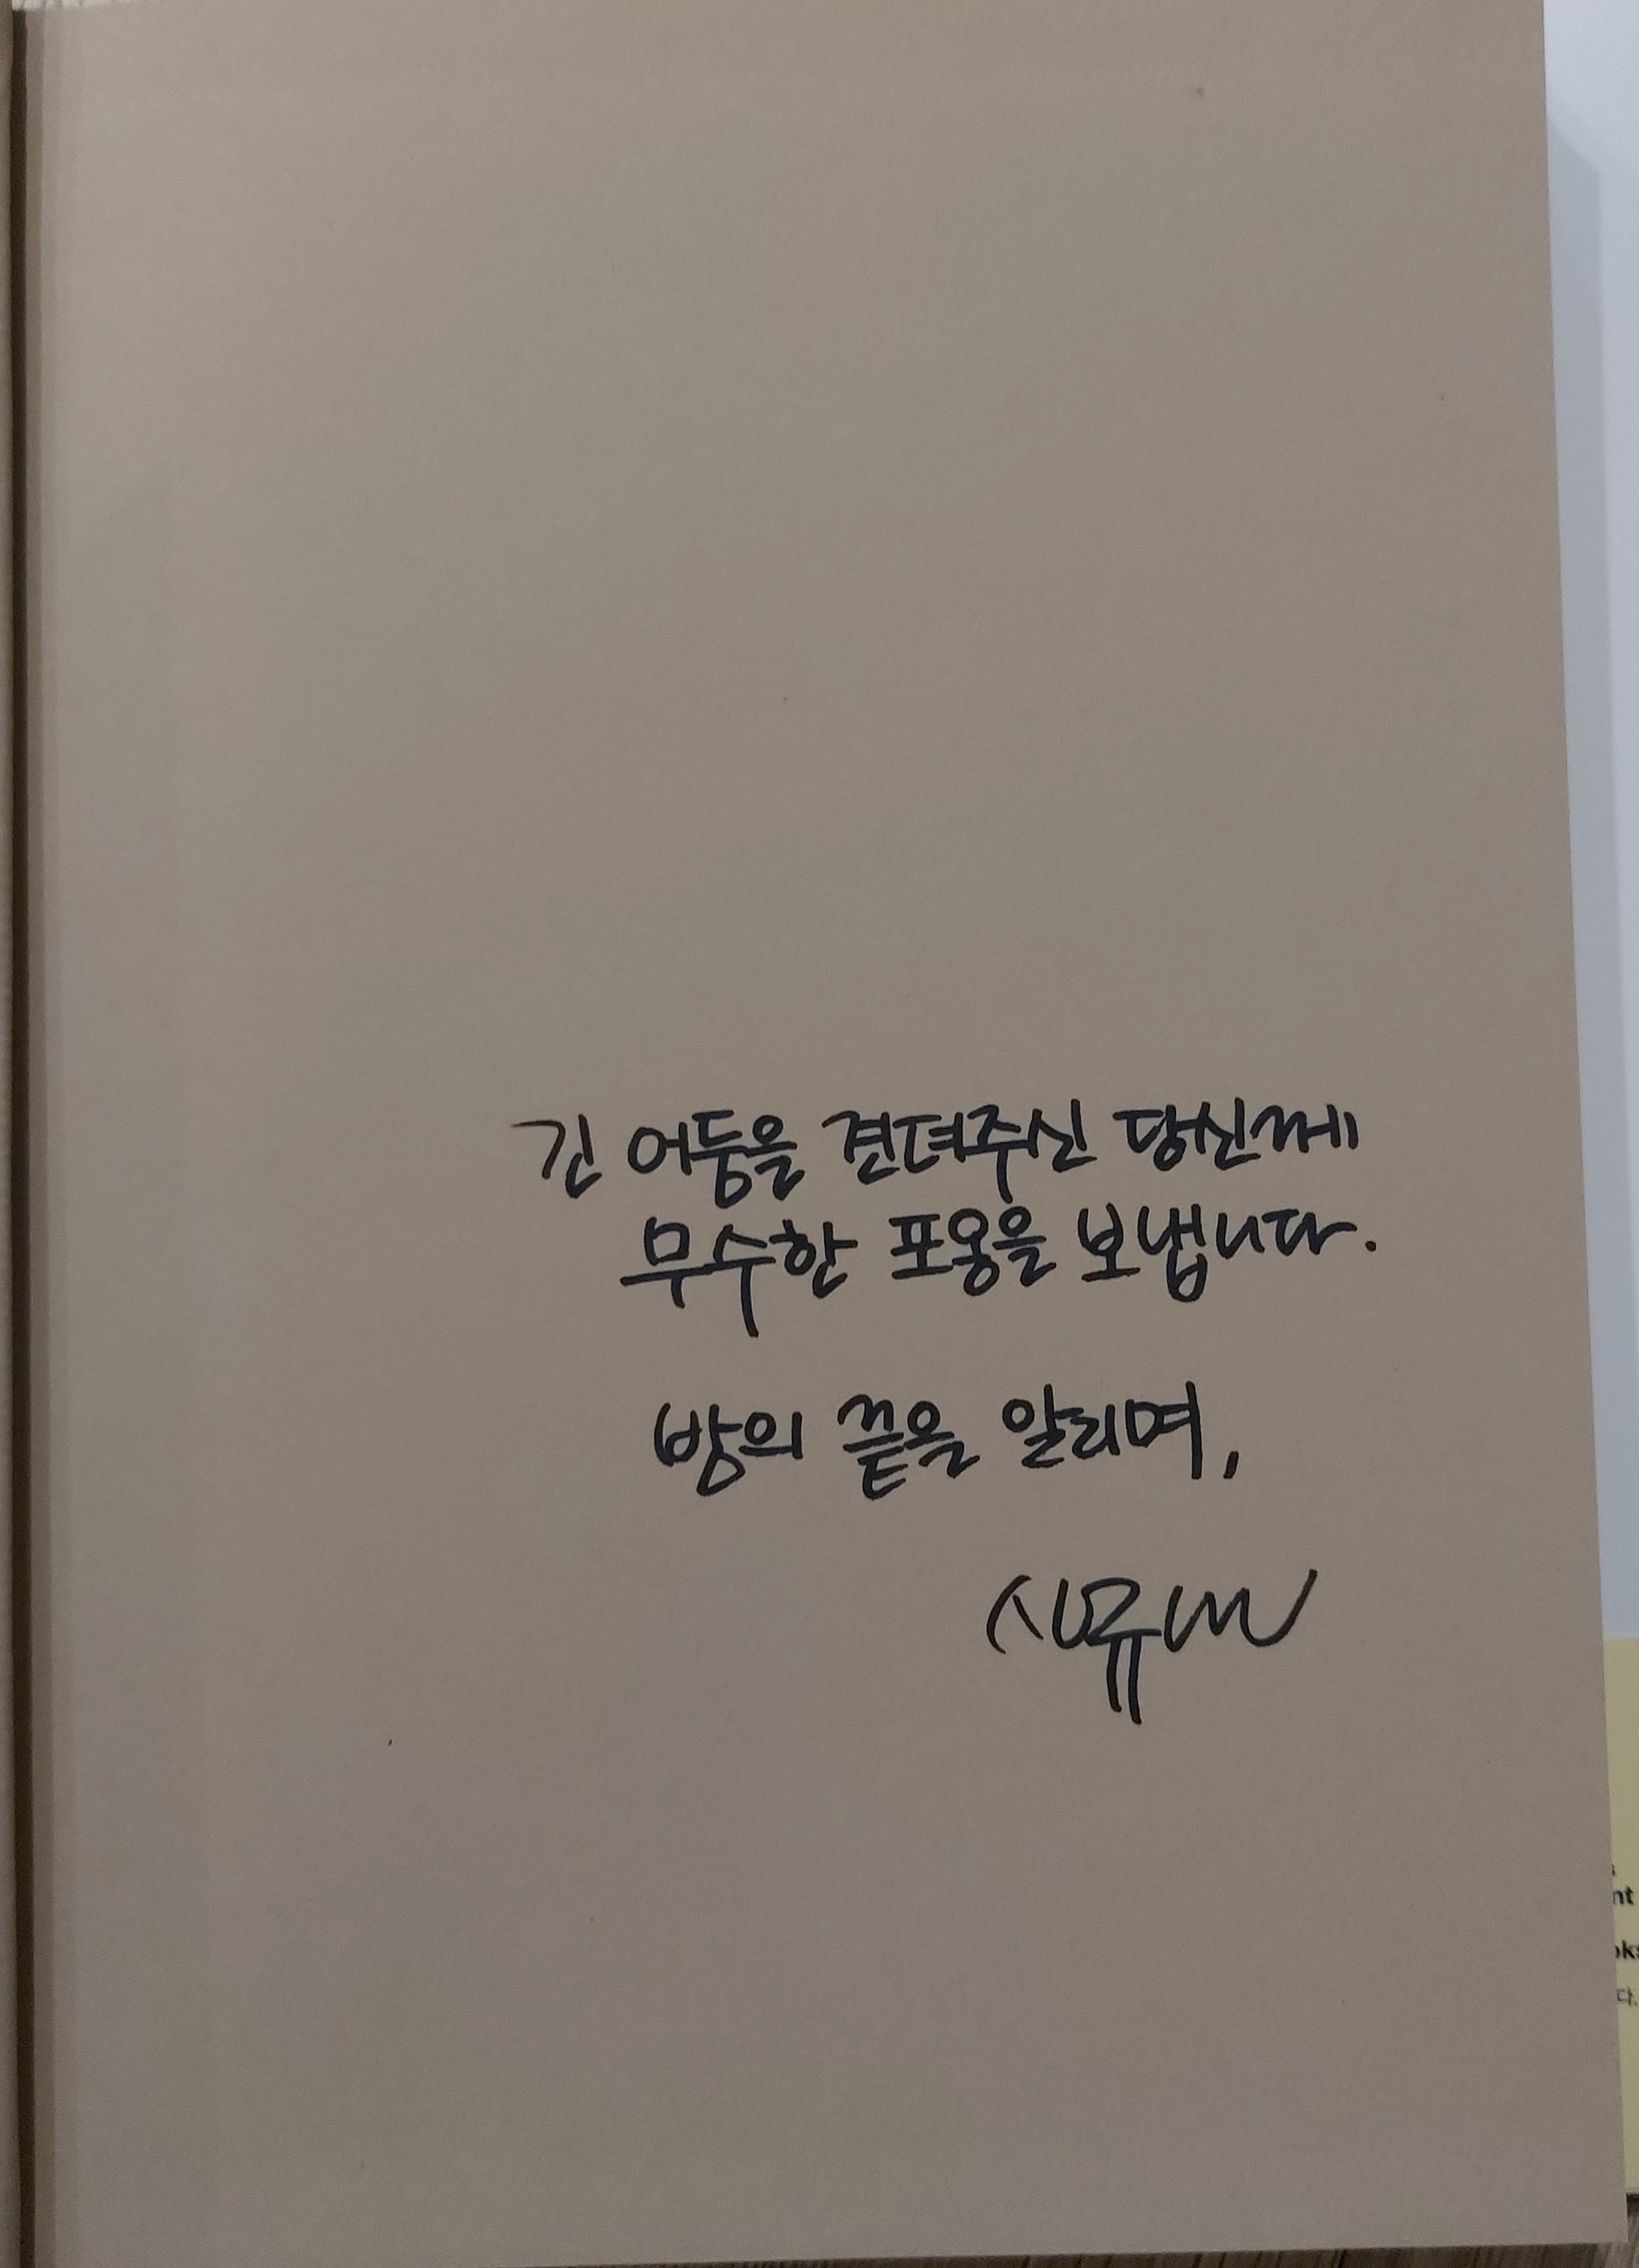 긴 어둠을 견뎌주신 당신께
무수한 포옹을 보냅니다.
밤의 끝을 알리며,
nt
다.